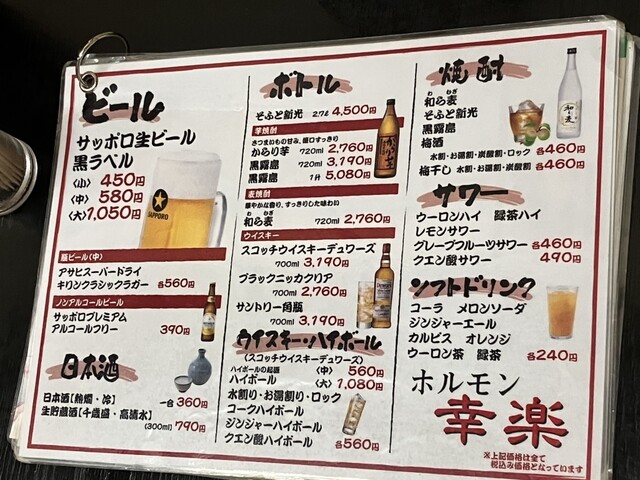 ビール
サッポロ生ビール
黒ラベル
〈小〉 450円
〈中〉 580円
〈大〉 1,050円
SAPPORO
瓶ビール(中)
アサヒスーパードライ
キリンクラシックラガー 各560円
ノンアルコールビール
サッポロプレミアム
アルコールフリー 390円
日本酒
日本酒【熱燗・冷】 一合 360円
生貯蔵酒【千歳盛・高清水】
(300ml) 790円
ボトル
そふと新光 2.7ℓ 4,500円
芋焼酎
さつまいもの甘み、極口すっきり
からり芋 720ml 2,760円
黒霧島 720ml 3,190円
黒霧島 1升 5,080円
麦焼酎
穏やかな香り、すっきりした味わい
わ むぎ
和ら麦 720ml 2,760円
ウイスキー
スコッチウイスキーデュワーズ
700ml 3,190円
ブラックニッカクリア
700ml 2,760円
サントリー角瓶
700ml 3,190円
ウイスキー・ハイボール
(スコッチウイスキーデュワーズ)
ハイボールの起源 〈中〉 560円
ハイボール 〈大〉 1,080円
水割り・お湯割り・ロック
コークハイボール
ジンジャーハイボール
クエン酸ハイボール 各560円
焼酎
わ むぎ
和ら麦
そふと新光
黒霧島
梅酒
水割・お湯割・炭酸割・ロック 各460円
梅干し 水割・お湯割・炭酸割 各460円
和ら麦
サワー
ウーロンハイ 緑茶ハイ
レモンサワー
グレープフルーツサワー 各460円
クエン酸サワー 490円
ソフトドリンク
コーラ メロンソーダ
ジンジャーエール
カルピス オレンジ
ウーロン茶 緑茶 各240円
ホルモン
幸楽
※上記価格は全て
税込み価格となっています